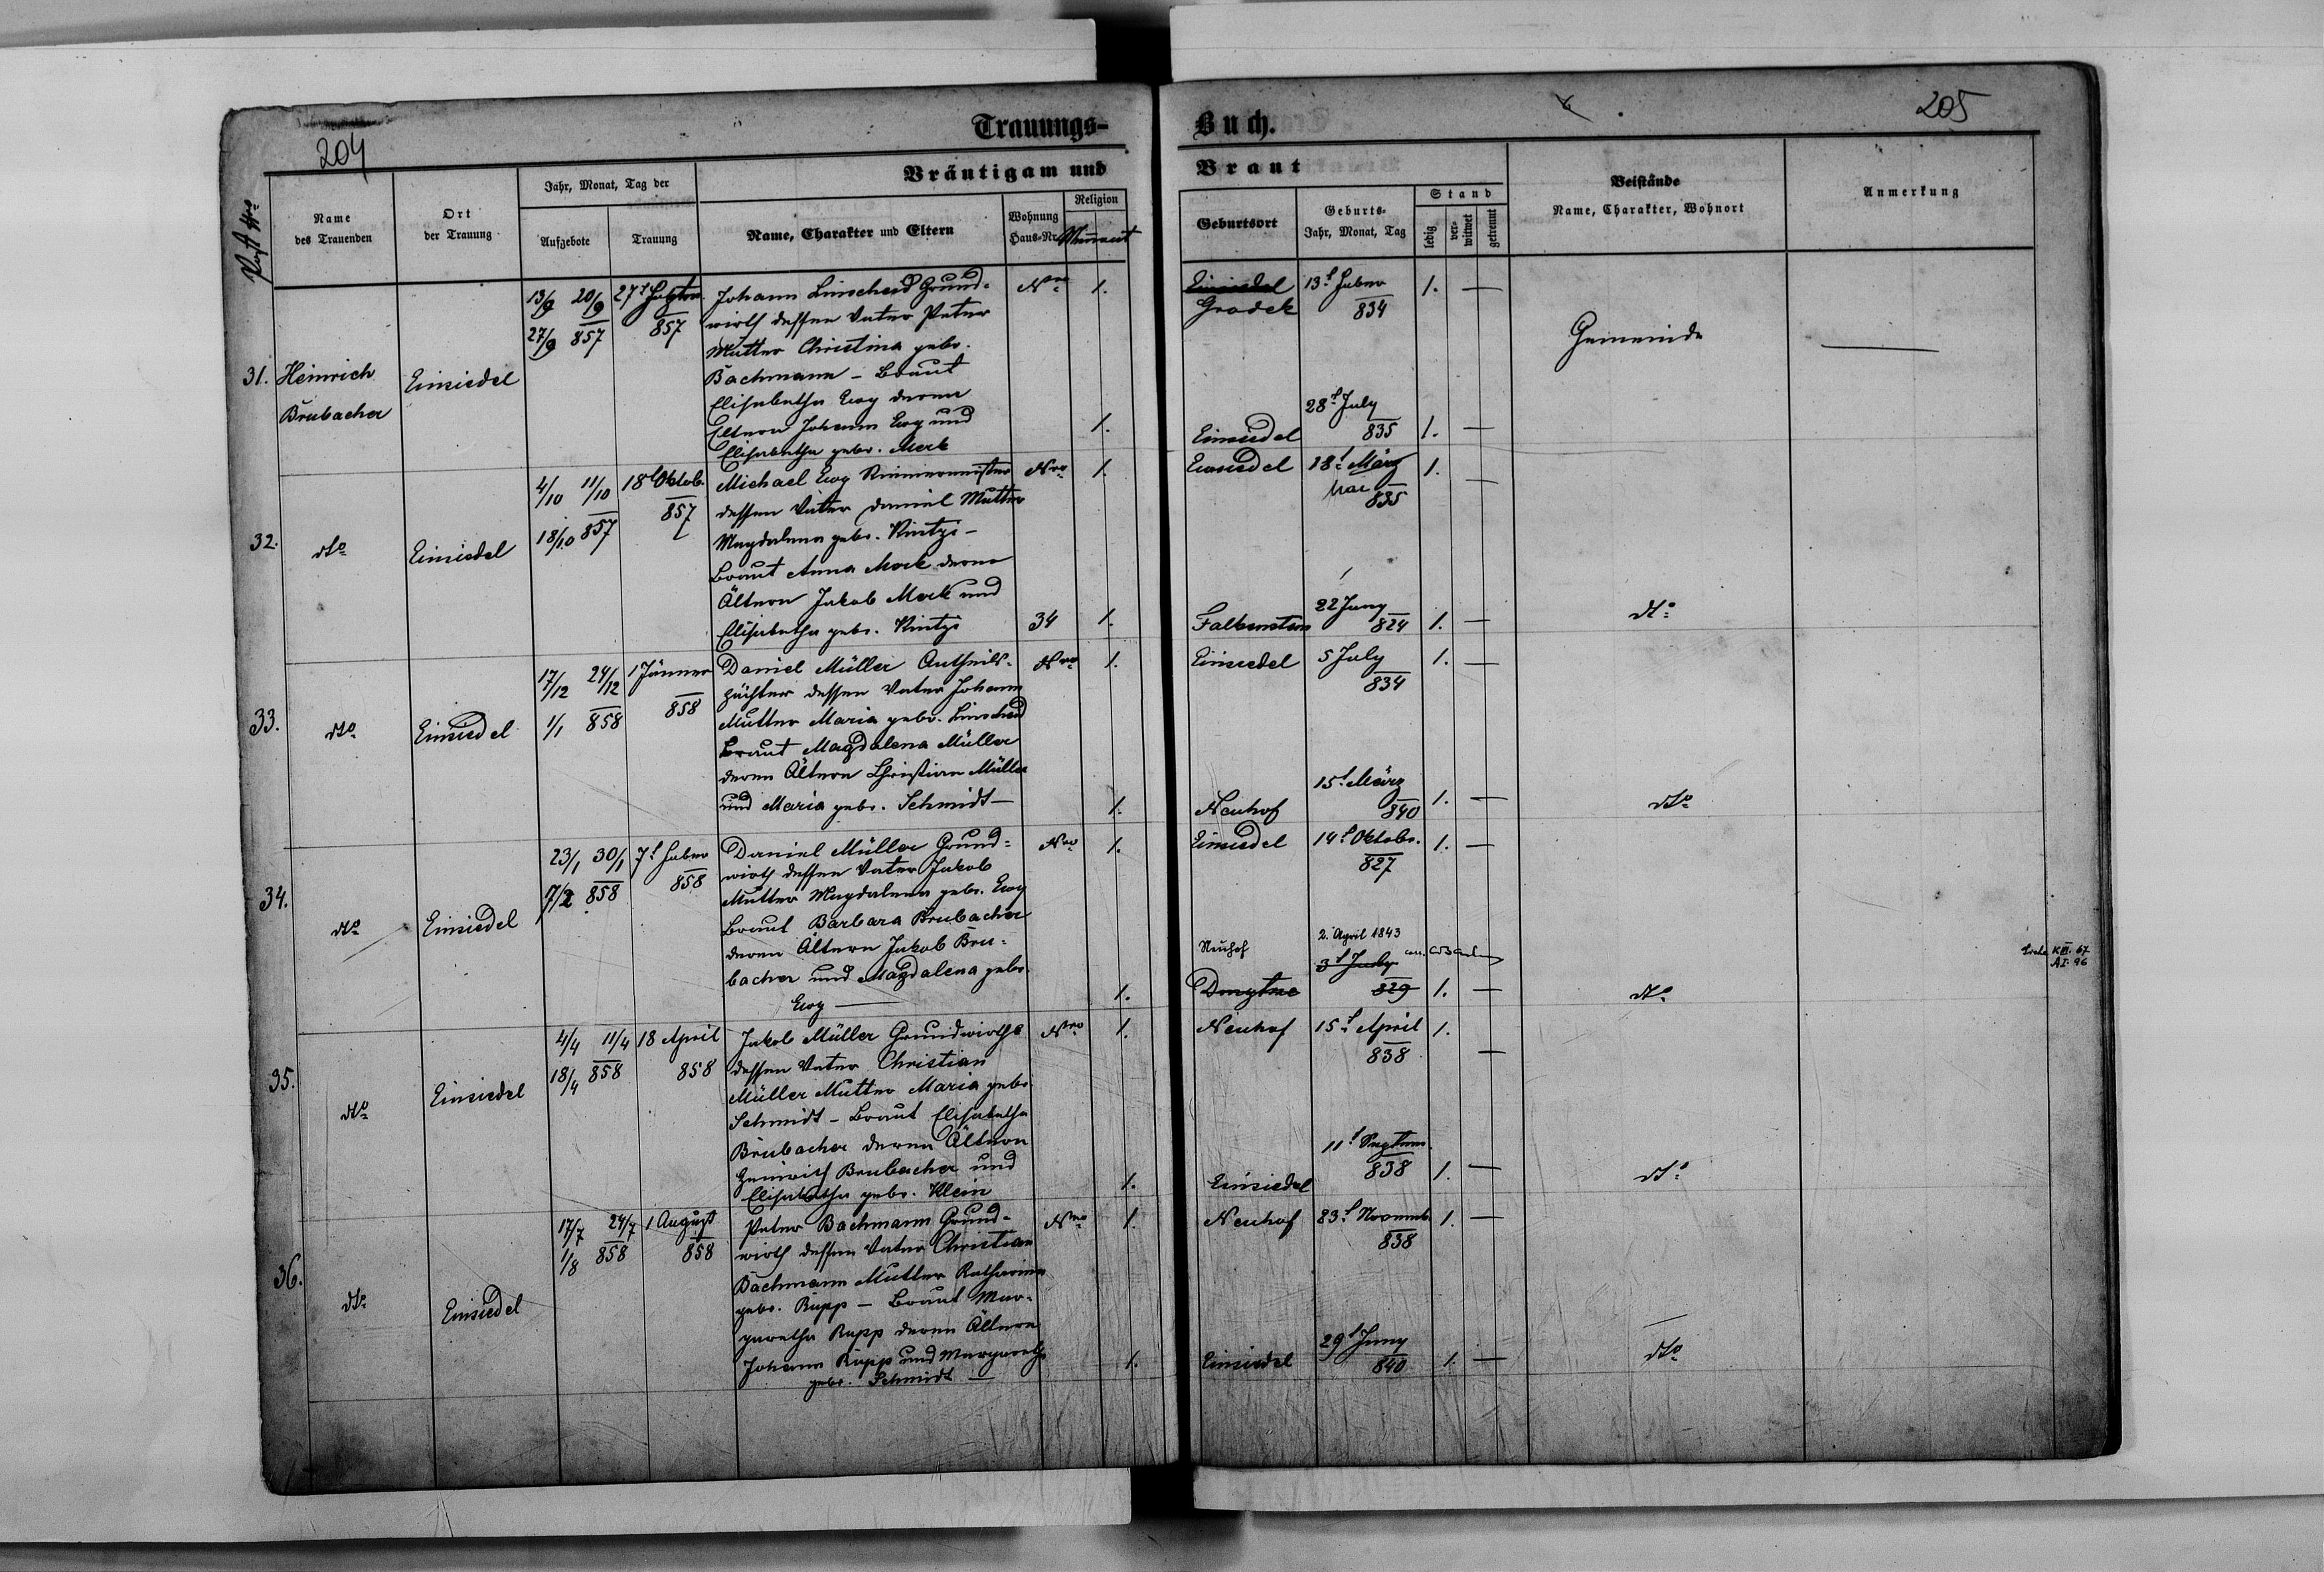 204
Trauungs-
Buch.
205
Bräutigam und
Braut
Post Nro
Name
des Trauenden
Ort
der Trauung
Jahr, Monat, Tag der
Aufgebote
Trauung
Name, Charakter und Eltern
Wohnung
Haus-Nr.
Religion
Mennonit
Geburtsort
Geburts-
Jahr, Monat, Tag
Stand
ledig
ver-
witwet
getrennt
Beistände
Name, Charakter, Wohnort
Anmerkung
31.
Heinrich
Brubacher
Einsiedel
13/9 20/9
27/9 857
27t Septem.
857
Johann Linscheid Grund-
wirth dessen Vater Peter
Mutter Christina gebr.
Bachmann – Braut
Elisabetha Ewy deren
Eltern Johann Ewy und
Elisabetha gebr. Merk
Nro
1.
1.
Einsiedel
Grodek
13t Feber
834
1. —
Einsiedel
28t July
835
1. —
Gemeinde
32.
dto
Einsiedel
4/10 11/10
18/10 857
18t Oktob.
857
Michael Ewy Riemermeister
dessen Vater Daniel Mutter
Magdalena gebr. Kintzi –
Braut Anna Merk deren
Ältern Jakob Merk und
Elisabetha gebr. Kintzi
Nro
34
1.
1.
Einsiedel
18t März
Mai
835
1. —
Falkenstein
22 Juny
824
1. —
dto
33.
dto
Einsiedel
17/12 24/12
1/1 858
1 Jänner
858
Daniel Müller Antheils-
pächter dessen Vater Johann
Mutter Maria gebr. Linscheid
Braut Magdalena Müller
deren Ältern Christian Müller
und Maria gebr. Schmidt —
Nro
1.
1.
Einsiedel
5 July
834
1. —
Neuhof
15t März
840
1. —
dto
34.
dto
Einsiedel
23/1 30/1
7/2 858
7t Feber
858
Daniel Müller Grund-
wirth dessen Vater Jakob
Mutter Magdalena gebr. Ewy
Braut Barbara Brubacher
deren Ältern Jakob Bru-
bacher und Magdalena gebr.
Ewy —
Nro
1.
1.
Einsiedel
14t Oktobr.
827
1. —
Neuhof
2. April 1843
3t July
Dmytrze
829
1. —
dto
Siehe K III. 67.
A I. 96
35.
dto
Einsiedel
4/4 11/4
18/4 858
18 April
858
Jakob Müller Grundwirths
dessen Vater Christian
Müller Mutter Maria gebr.
Schmidt – Braut Elisabetha
Brubacher deren Ältern
Heinrich Brubacher und
Elisabetha gebr. Klein
Nro
1.
1.
Neuhof
15t April
838
1. —
Einsiedel
11t Septem.
838
1. —
dto
36.
dto
Einsiedel
17/7 24/7
1/8 858
1 August
858
Peter Bachmann Grund-
wirth dessen Vater Christian
Bachmann Mutter Katharina
gebr. Rupp – Braut Mar-
garetha Rupp deren Ältern
Johann Rupp und Margaretha
gebr. Schmidt —
Nro
1.
1.
Neuhof
23t Novemb.
838
1. —
Einsiedel
29t Juny
840
1. —
dto